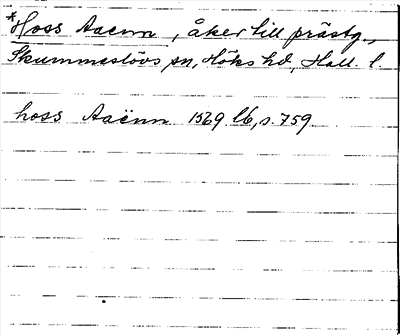 *Hoss Aaenn, åker till prästg.,
Skummeslövs sn, Höks hd, Hall. l.
hoss Aaënn 1569 lb, s. 759